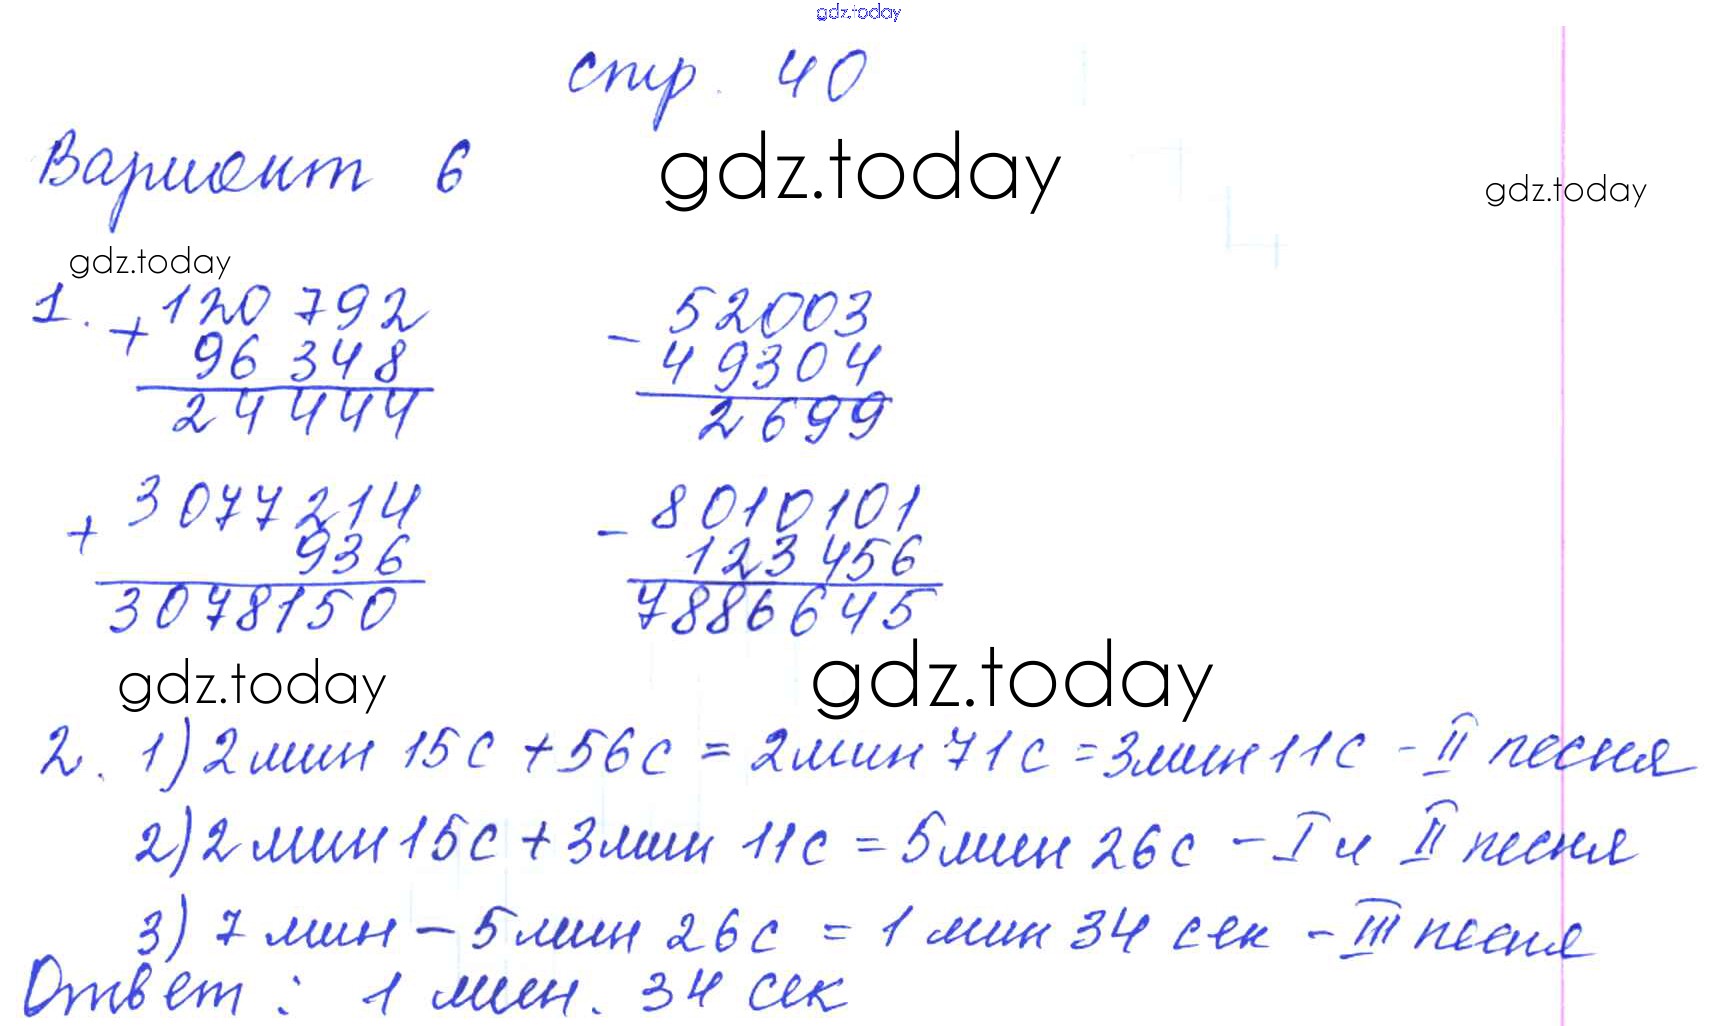 gdz.today
стр. 40
Вариант 6
gdz.today
gdz.today
gdz.today
1. + 120 792 - 52003
96 348 49304
24444 2699
+ 3077214 - 8010101
936 123456
3078150 7886645
gdz.today
gdz.today
2. 1) 2 мин 15с + 56с = 2мин 71с = 3мин 11с - II песня
2) 2 мин 15с + 3мин 11с = 5мин 26с - I и II песня
3) 7 мин - 5мин 26с = 1 мин 34 сек - III песня
Ответ: 1 мин. 34 сек